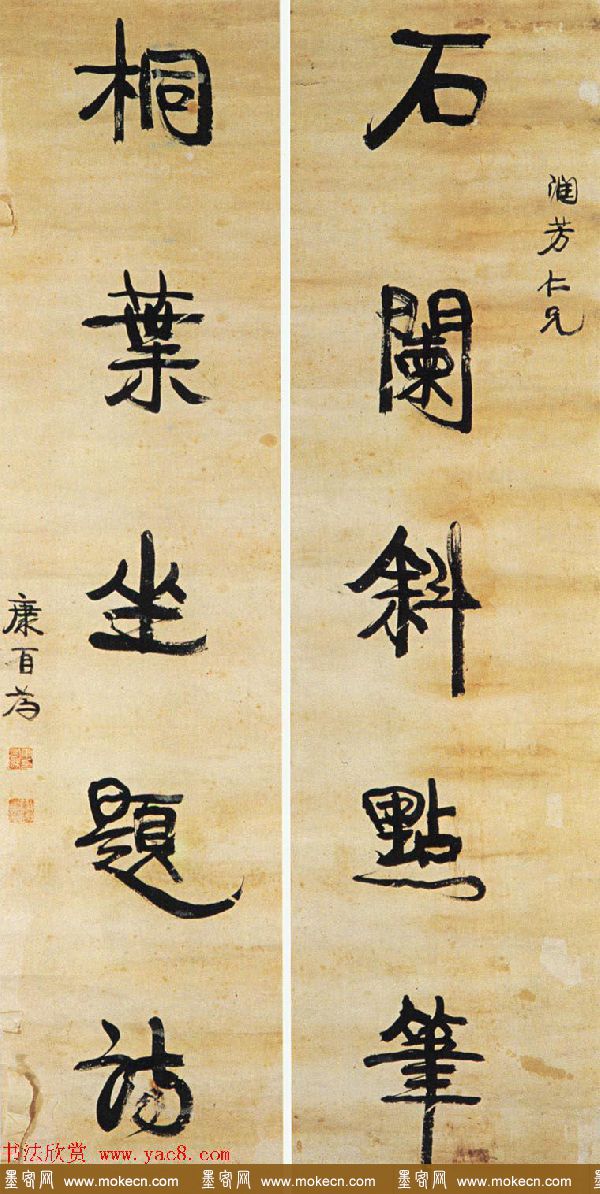 石闌斜點筆
潤芳仁兄
桐葉坐題詩
康有為
书法欣赏 www.yac8.com
墨客网 www.mokecn.com 墨客网 www.mokecn.com 墨客网 www.mokecn.com